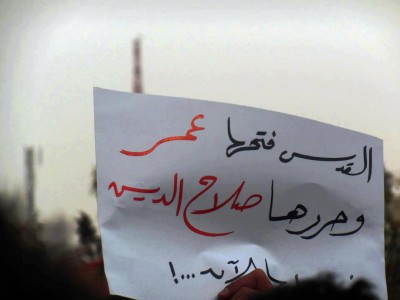 القدس فتحها عمر
وحررها صلاح الدين
الآن ...!